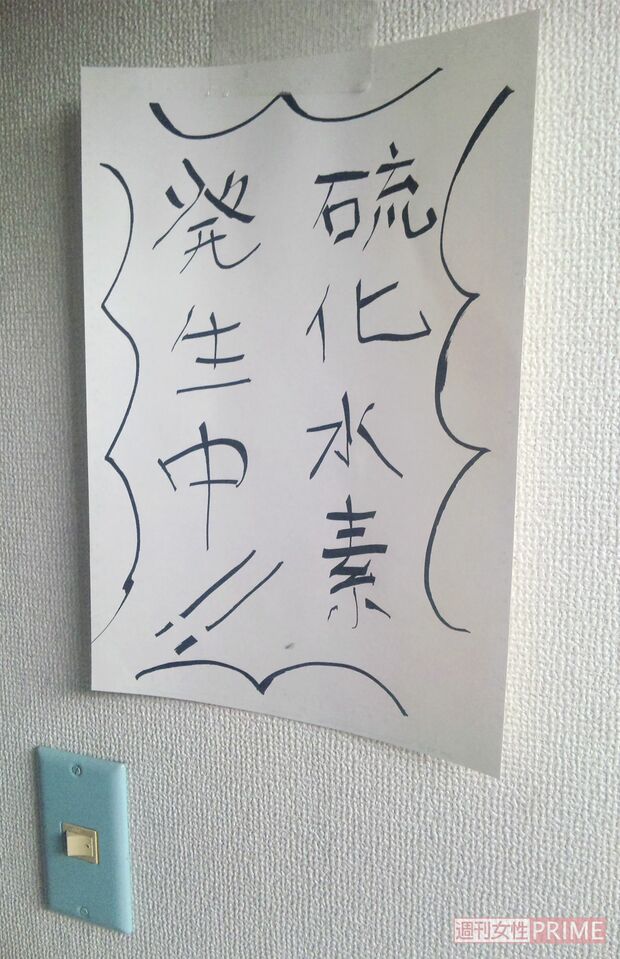 硫化水素
発生中!!
週刊女性PRIME